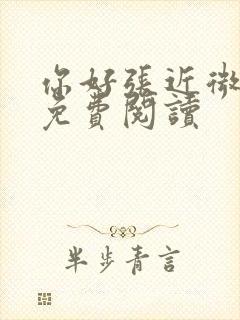 你好張近微
免費閱讀
半步青言